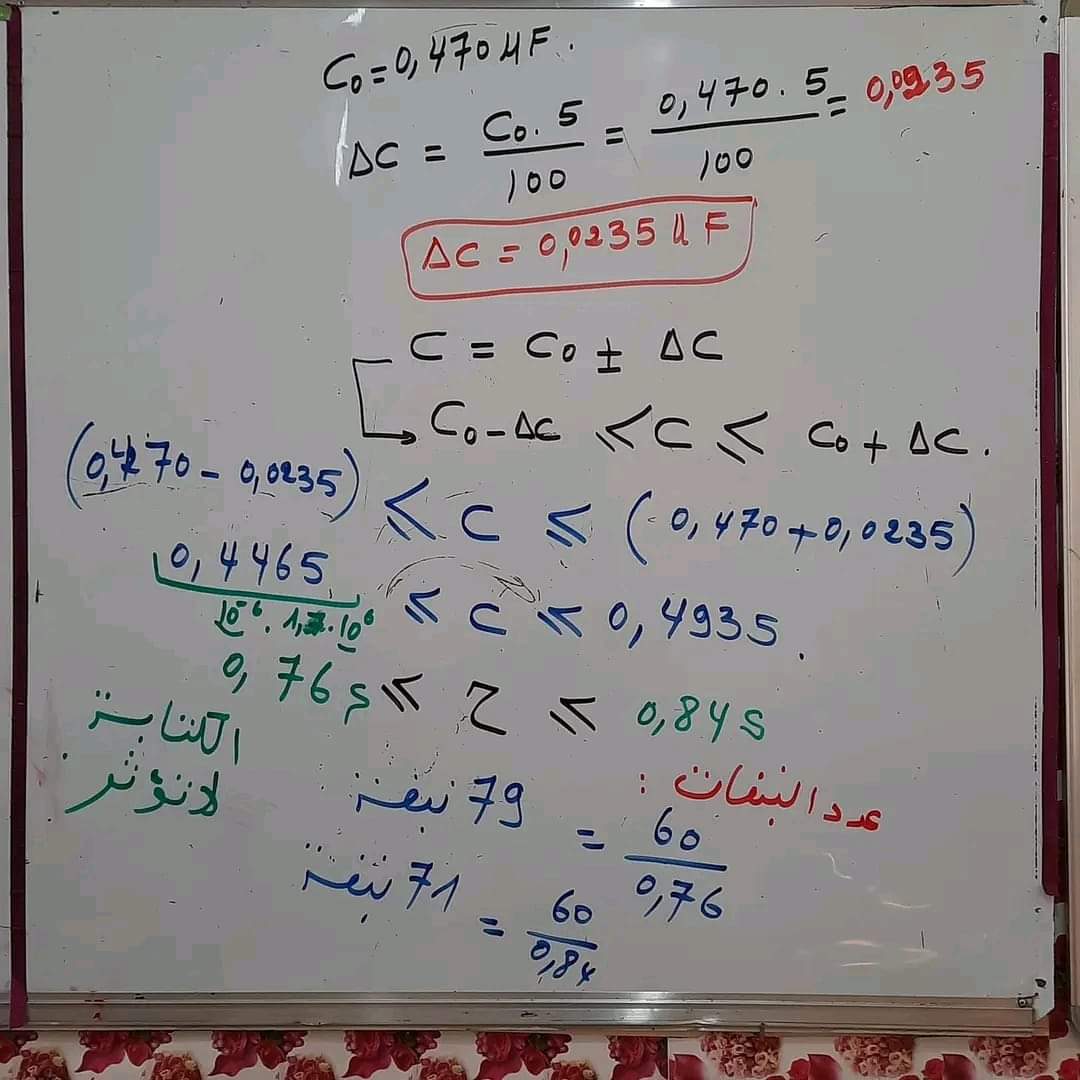 C₀ = 0,470 µF.
ΔC = C₀ . 5 / 100 = 0,470 . 5 / 100 = 0,0235
ΔC = 0,0235 µF
C = C₀ ± ΔC
C₀ - ΔC ≤ C ≤ C₀ + ΔC.
(0,470 - 0,0235) ≤ C ≤ (0,470 + 0,0235)
0,4465 ≤ C ≤ 0,4935.
10⁻⁶ . 1,7 . 10⁶
0,76 s ≤ τ ≤ 0,84 s
الكتابة
لا تؤثر
عدد النبضات :
79 نبضة = 60 / 0,76
71 نبضة = 60 / 0,84